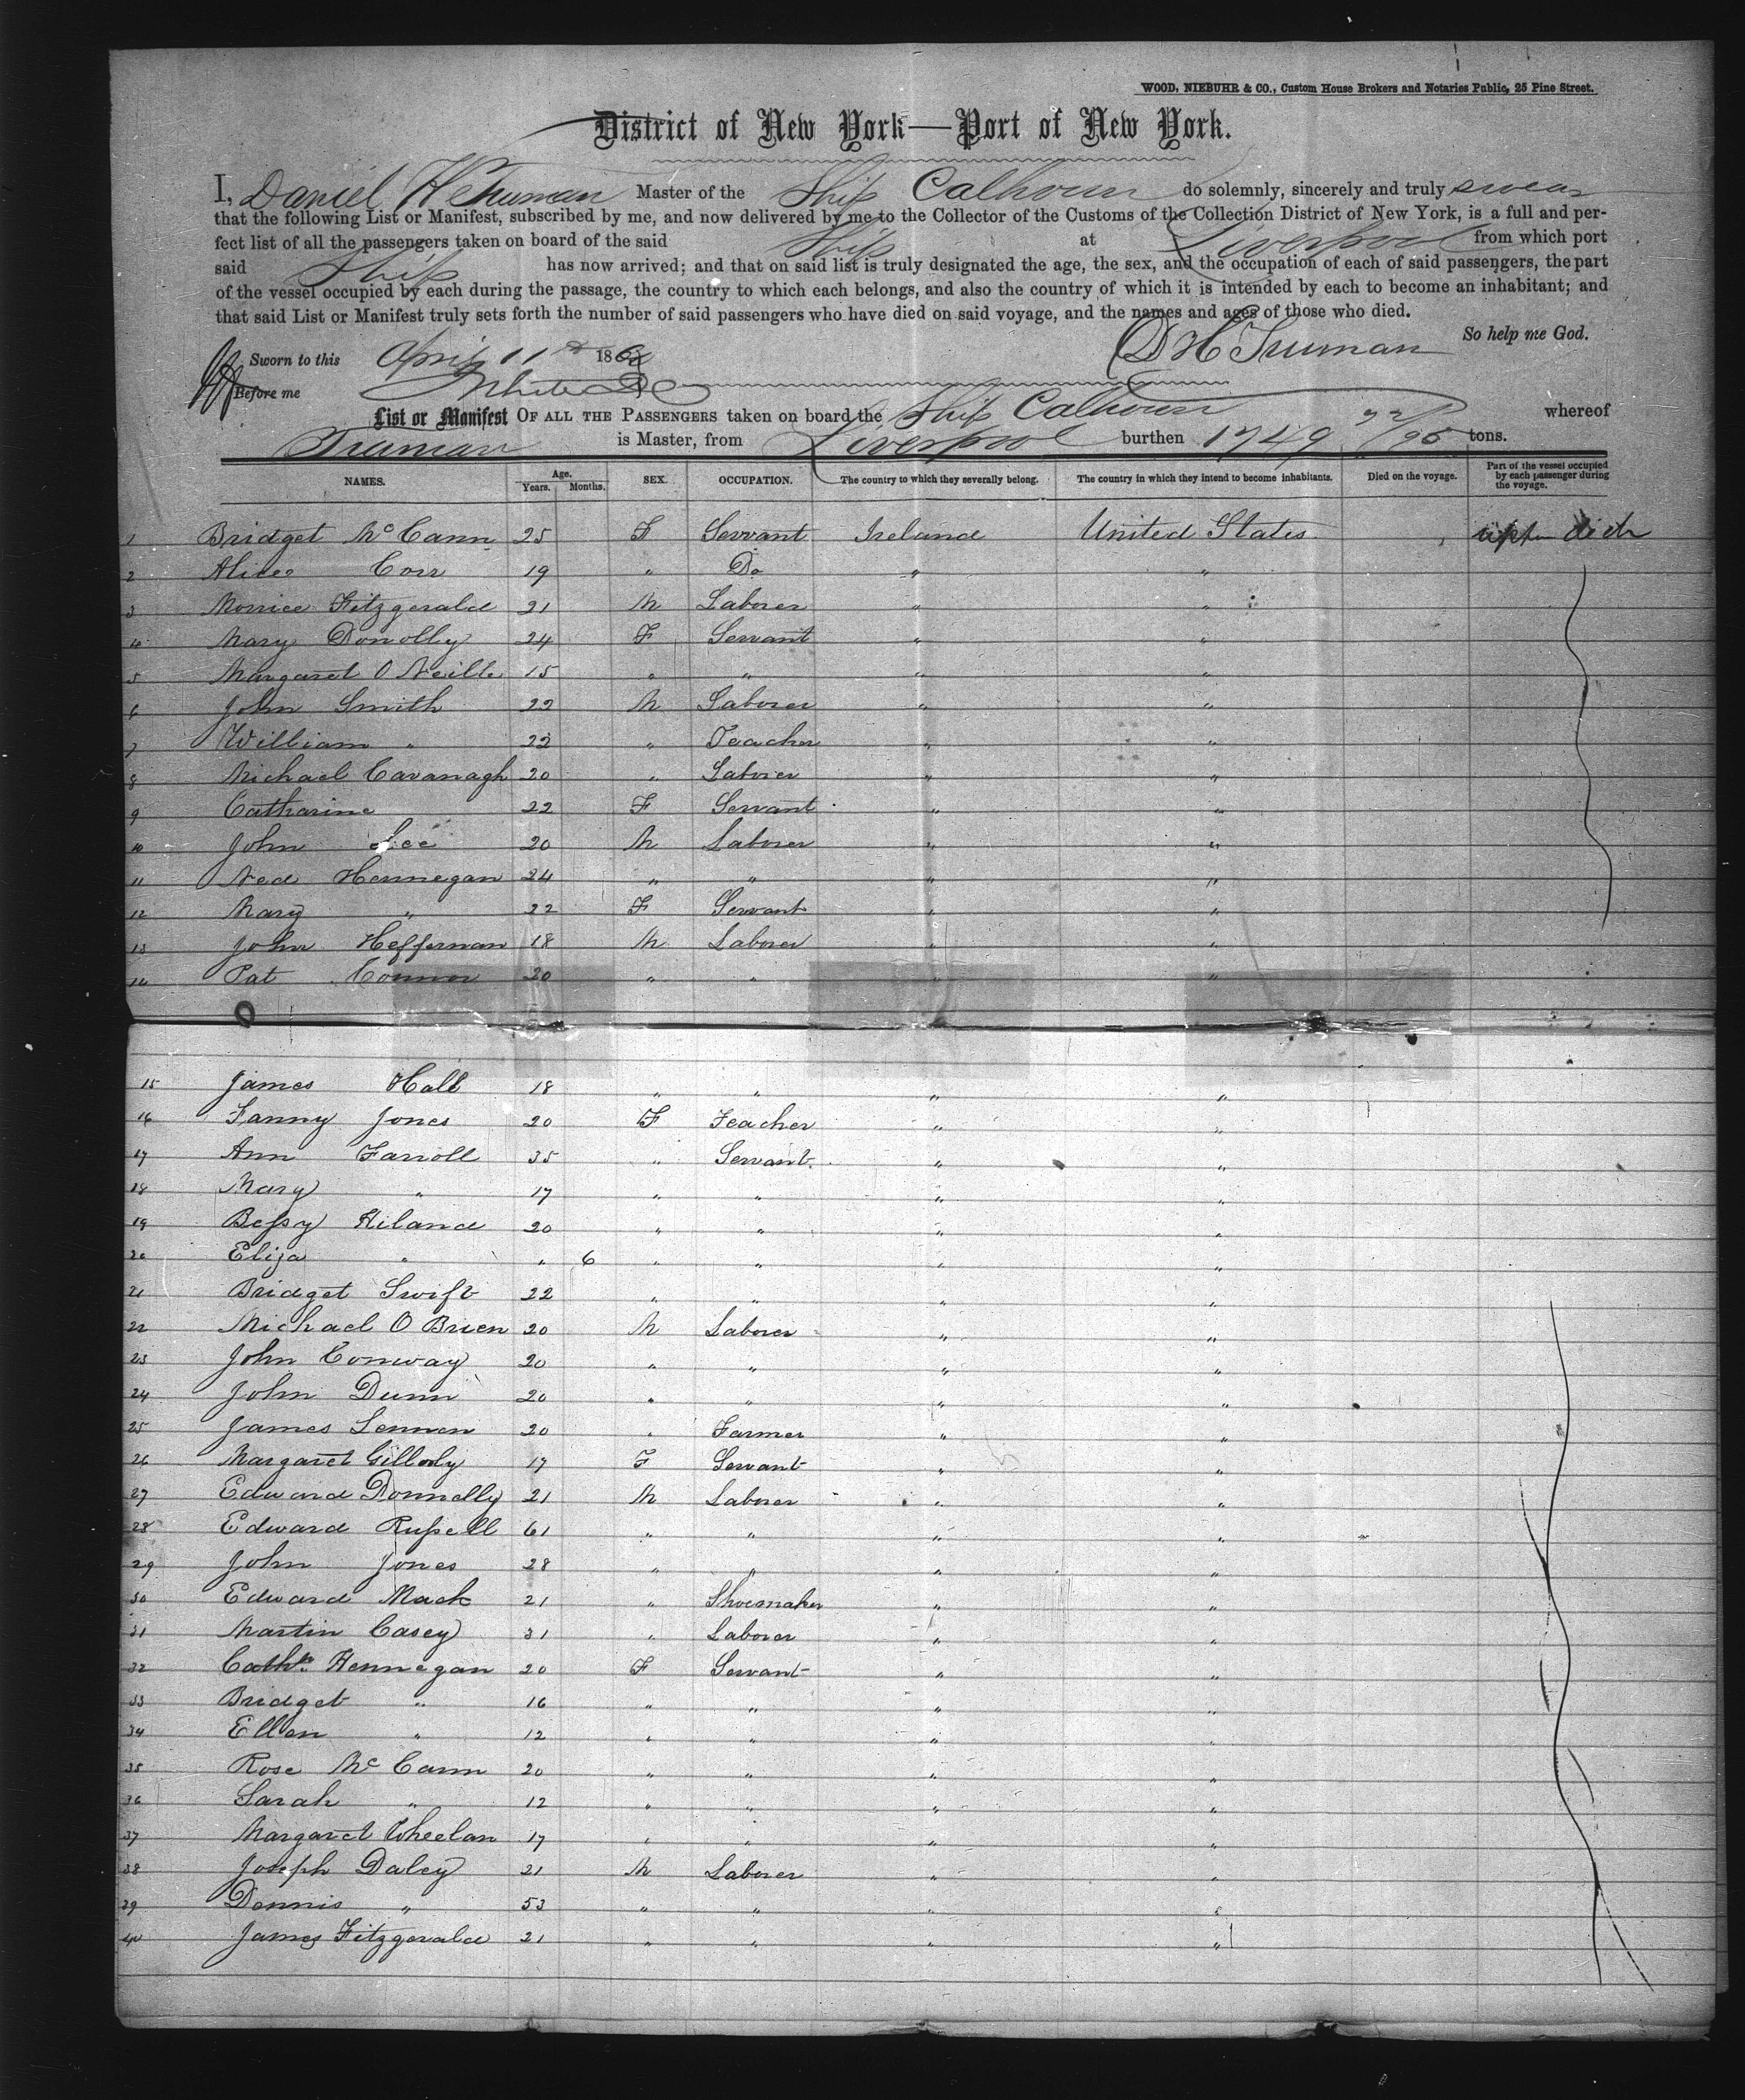 WOOD, NIEBUHR & CO., Custom House Brokers and Notaries Public, 25 Pine Street.
District of New York—Port of New York.
I, Daniel H Truman Master of the Ship Calhoun do solemnly, sincerely and truly swear
that the following List or Manifest, subscribed by me, and now delivered by me to the Collector of the Customs of the Collection District of New York, is a full and per-
fect list of all the passengers taken on board of the said Ship at Liverpool from which port
said Ship has now arrived; and that on said list is truly designated the age, the sex, and the occupation of each of said passengers, the part
of the vessel occupied by each during the passage, the country to which each belongs, and also the country of which it is intended by each to become an inhabitant; and
that said List or Manifest truly sets forth the number of said passengers who have died on said voyage, and the names and ages of those who died.
So help me God.
Sworn to this April 11th 186 D H Truman
Before me
List or Manifest OF ALL THE PASSENGERS taken on board the Ship Calhoun whereof
Truman is Master, from Liverpool burthen 1749 72/95 tons.
NAMES. Age. Years. Months. SEX. OCCUPATION. The country to which they severally belong. The country in which they intend to become inhabitants. Died on the voyage. Part of the vessel occupied by each passenger during the voyage.
1 Bridget McCann 25 F Servant Ireland United States
2 Alice Corr 19 " Do " "
3 Morrice Fitzgerald 21 M Laborer " "
4 Mary Donolly 24 F Servant " "
5 Margaret O Neille 15 " " " "
6 John Smith 22 M Laborer " "
7 William " 22 " Teacher " "
8 Michael Cavanagh 20 " Laborer " "
9 Catharine 22 F Servant " "
10 John Lee 20 M Laborer " "
11 Ned Hennegan 24 " " " "
12 Mary " 22 F Servant " "
13 John Heffernan 18 M Laborer " "
14 Pat Connor 20 " " " "
15 James Hall 18 " " " "
16 Fanny Jones 20 F Teacher " "
17 Ann Farroll 35 " Servant " "
18 Mary " 17 " " " "
19 Bessy Hiland 20 " " " "
20 Eliza " " 6 " " " "
21 Bridget Swift 22 " " " "
22 Michael O Brien 20 M Laborer " "
23 John Conway 20 " " " "
24 John Dunn 20 " " " "
25 James Lennon 20 " Farmer " "
26 Margaret Gillooly 17 F Servant " "
27 Edward Donnelly 21 M Laborer " "
28 Edward Russell 61 " " " "
29 John Jones 28 " " " "
30 Edward Mack 21 " Shoemaker " "
31 Martin Casey 31 " Laborer " "
32 Cathe Hennegan 20 F Servant " "
33 Bridget " 16 " " " "
34 Ellen " 12 " " " "
35 Rose McCann 20 " " " "
36 Sarah " 12 " " " "
37 Margaret Wheelan 17 " " " "
38 Joseph Daley 21 M Laborer " "
39 Dennis " 53 " " " "
40 James Fitzgerald 21 " " " "